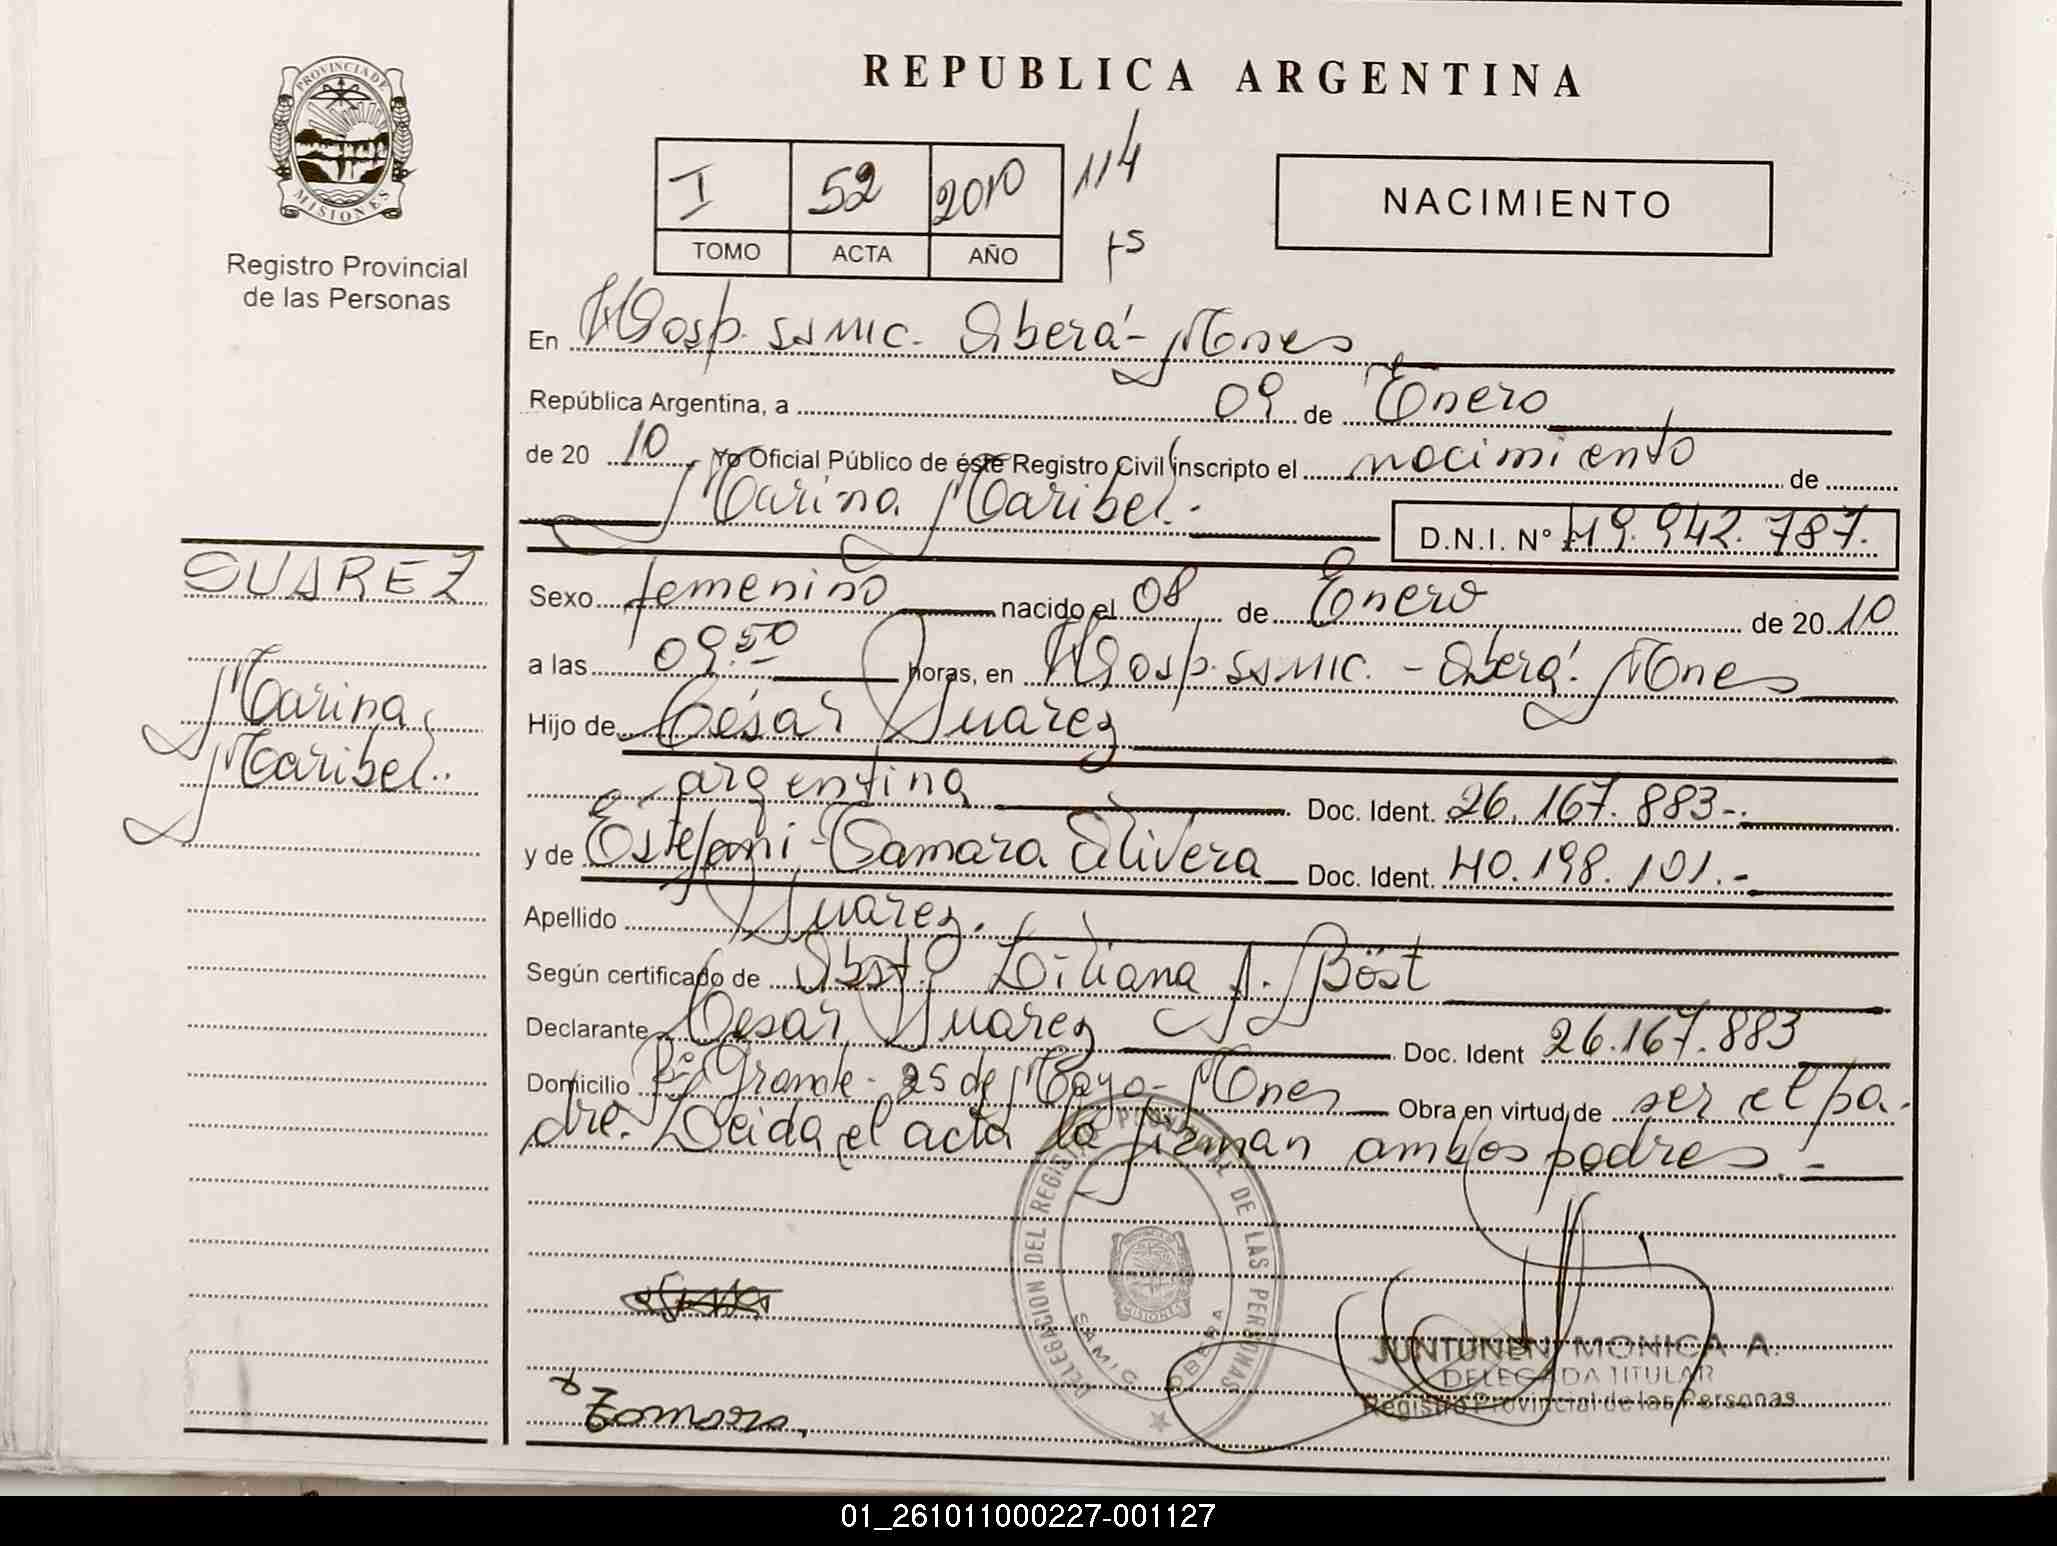 REPUBLICA ARGENTINA
PROVINCIA DE
MISIONES
Registro Provincial
de las Personas
I 52 2010 114
TOMO ACTA AÑO fs
NACIMIENTO
En Hosp. SAMIC. Oberá - Mnes
República Argentina, a 09 de Enero
de 20 10 Yo Oficial Público de éste Registro Civil inscripto el nacimiento de
Marina Maribel.- D.N.I. Nº 49.942.787.
SUAREZ
Marina
Maribel.
Sexo femenino nacido el 08 de Enero de 20 10
a las 09.50 horas, en Hosp. SAMIC. - Oberá. Mnes
Hijo de César Suarez
argentina Doc. Ident. 26.167.883-.
y de Estefani Tamara Olivera Doc. Ident. 40.198.101.-
Apellido Suarez.
Según certificado de Obst. Liliana A. Böst
Declarante César Suarez Doc. Ident 26.167.883
Domicilio Bº Grande - 25 de Mayo - Mnes Obra en virtud de ser el pa-
dre. Leida el acta la firman ambos padres.-
DELEGACION DEL REGISTRO PROVINCIAL DE LAS PERSONAS
PROVINCIA DE
MISIONES
SAMIC OBERA
Tamara.
JUNTUNEN MONICA A.
DELEGADA TITULAR
Registro Provincial de las Personas
01_261011000227-001127